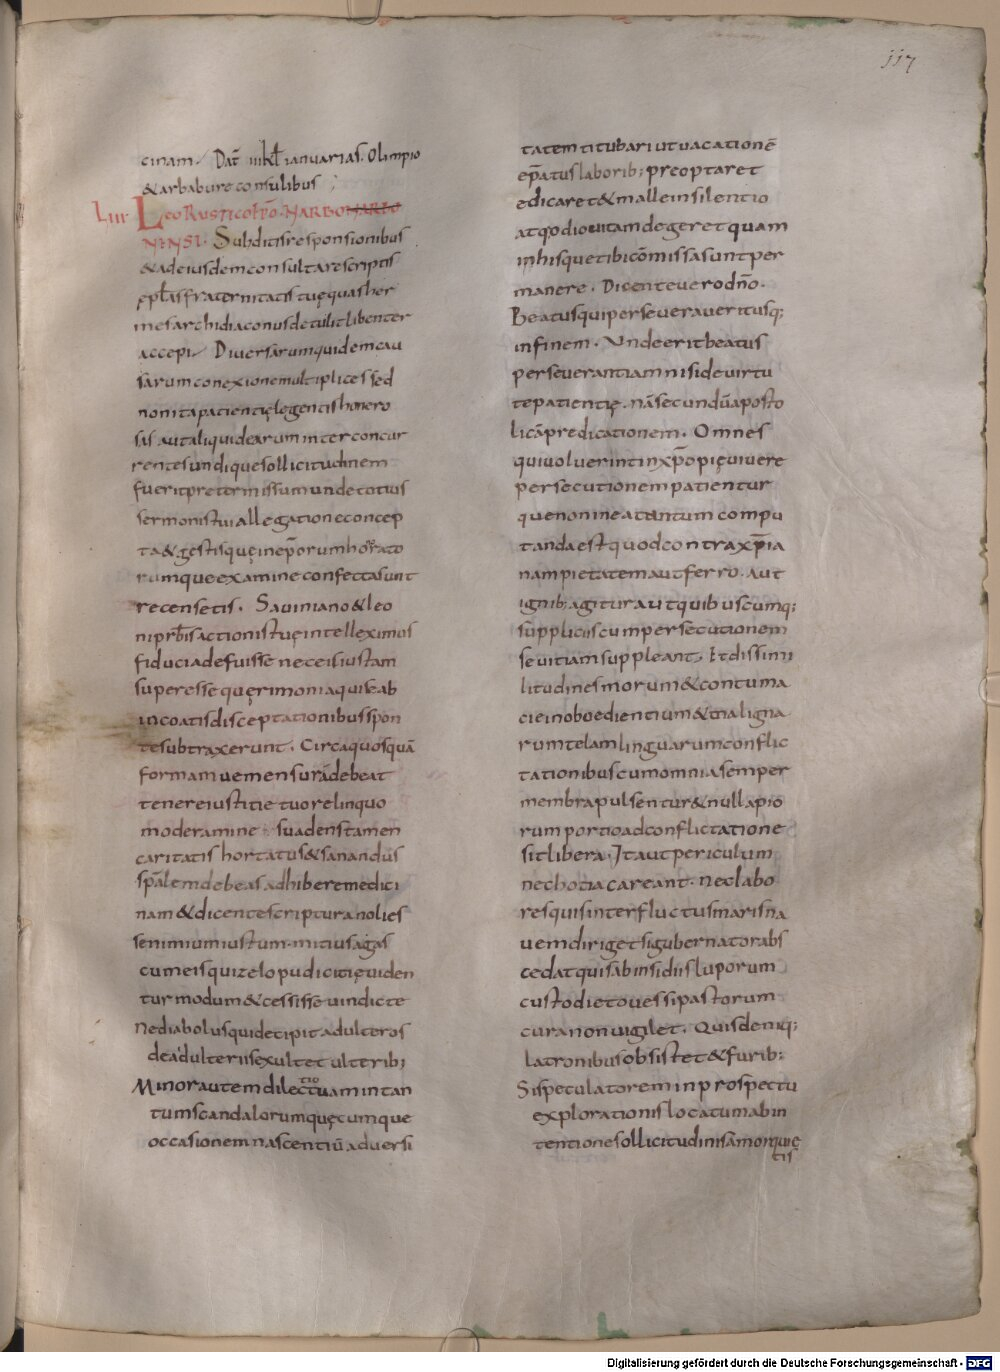 117
cinam. Dat̄ iii kl̄ ianuarias. Olimpio
& arbabure consulibus;
Liii Leo Rustico ep̄o. Narbonarbo
nensi. Subditis responsionibus
& ad eiusdem consulta rescriptis
ępl̄as fraternitatis tuę quas her
mes archidiaconus detulit libenter
accepi. Diversarum quidem cau
sarum conexione multiplices sed
non ita patientię legentis honero
sas aut aliquid earum inter concur
rentes undique sollicitudinem
fuerit pretermissum unde totius
sermonis tui allegatione concep
ta & gestis quę in ep̄orum honorato
rumque examine confecta sunt
recensetis. Saviniano & leo
ni prb̄is actionis tuę intelleximus
fiducia defuisse nec eis iustam
superesse quęrimonia qui se ab
incoatis disceptationibus spon
te subtraxerunt. Circa quos quā
formam vem ensurā debeat
tenere iustitie tuo relinquo
moderamine suadens tamen
caritatis hortatus & sanandus
sp̄alem debeas adhibere medici
nam & dicente scriptura noli es
se nimium iustum. mitius agas
cum eis qui zelo pudicitię viden
tur modum & cessisse vindicte
Ne diabolus qui decipit adulteros
de adulteriis exultet ulterib;
Minor autem dilectio tuam in tan
tum scandalorum quęcumque
occasione nascentiū adversi
tatem titubari ut vacationē
ep̄atus laborib; preoptaret
edicaret & malle in silentio
atq̄ odio vitam degeret quam
in his que tibi cōmissa sunt per
manere. Dicente vero dn̄o.
Beatus qui perseveraverit usq;
in finem. Unde erit beatus
perseverantiam nisi de virtu
te patientię. nā secundū aposto
licā predicationem. Omnes
qui voluerint in xp̄o pię vivere
persecutionem patientur
que non in ea tantum compu
tanda est quod contra xp̄ia
nam pietatem aut ferro. aut
ignib; agitur aut quibuscumq;
suppliciis cum persecutionem
sevitiam suppleant. Et dissimi
litudines morum & contuma
cie inoboedientium & maligna
rum telam linguarum conflic
tationibus cum omnia semper
membra pulsentur & nulla pio
rum portio ad conflictatione
sit libera. Ita ut periculum
nec hotia careant. nec labo
res quis inter fluctus maris na
vem diriget si gubernator abs
cedat quis ab insidiis luporum
custodiet oves si pastorum
cura non vigilet. Quis deniq;
latronibus obsistet & furib;
Si speculatorem in prospectu
explorationis locatum ab in
tentione sollicitudinis amor quię
tis
Digitalisierung gefördert durch die Deutsche Forschungsgemeinschaft - DFG